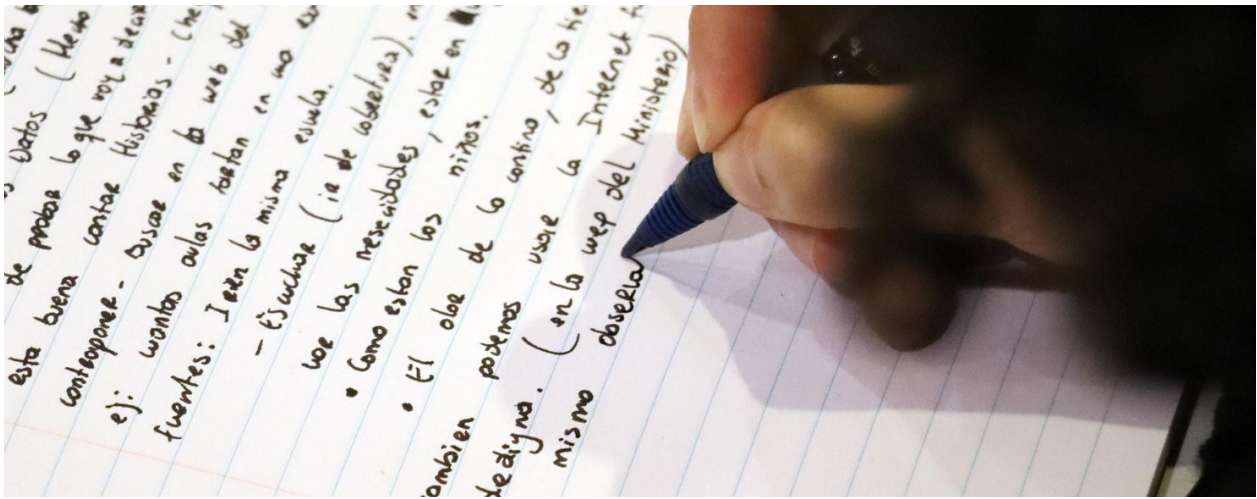 Datos (Hecho
de probar lo que voy a decir
esta buena contar Historias - (he
contraponer - Buscar en la web del
ej: cuantas aulas faltan en una es
fuentes: Ir en la misma escuela.
- Escuchar (ir de cobertura).
las nesecidades, estar en
• Como estan los niños.
• El olor de la cantina, de la tie
ambien podemos usar la Internet f
dedigna. (en la wep del Ministerio)
mismo observa